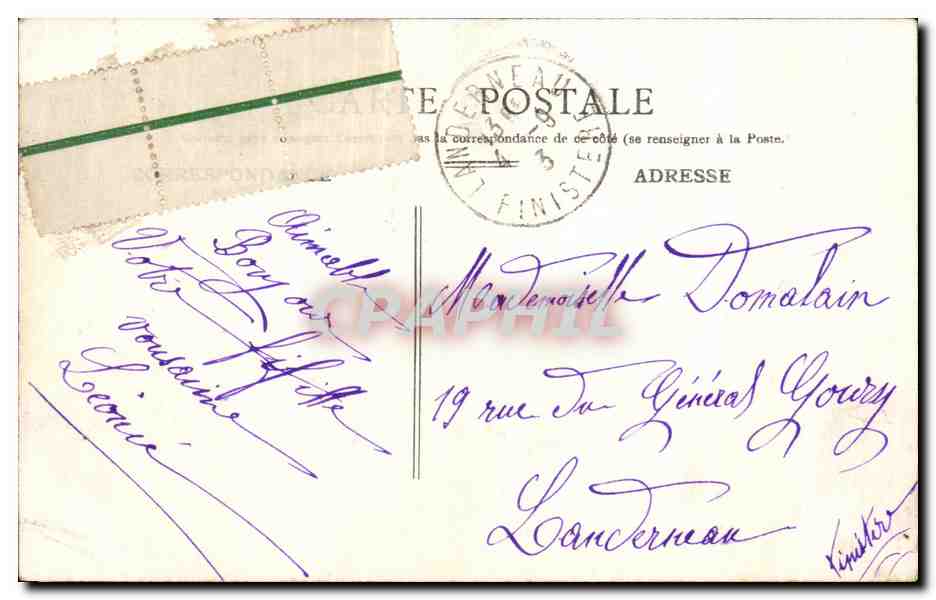 CARTE POSTALE
pas la correspondance de ce côté (se renseigner à la Poste.
CORRESPONDANCE
ADRESSE
LANDERNEAU
3 - 9
4 3
FINISTERE
Aimable
Bonjour
Votre fifille
vous aime
Léonie
Mademoiselle Domalain
19 rue du Général Goury
Landerneau
Finistère
CPAPHIL